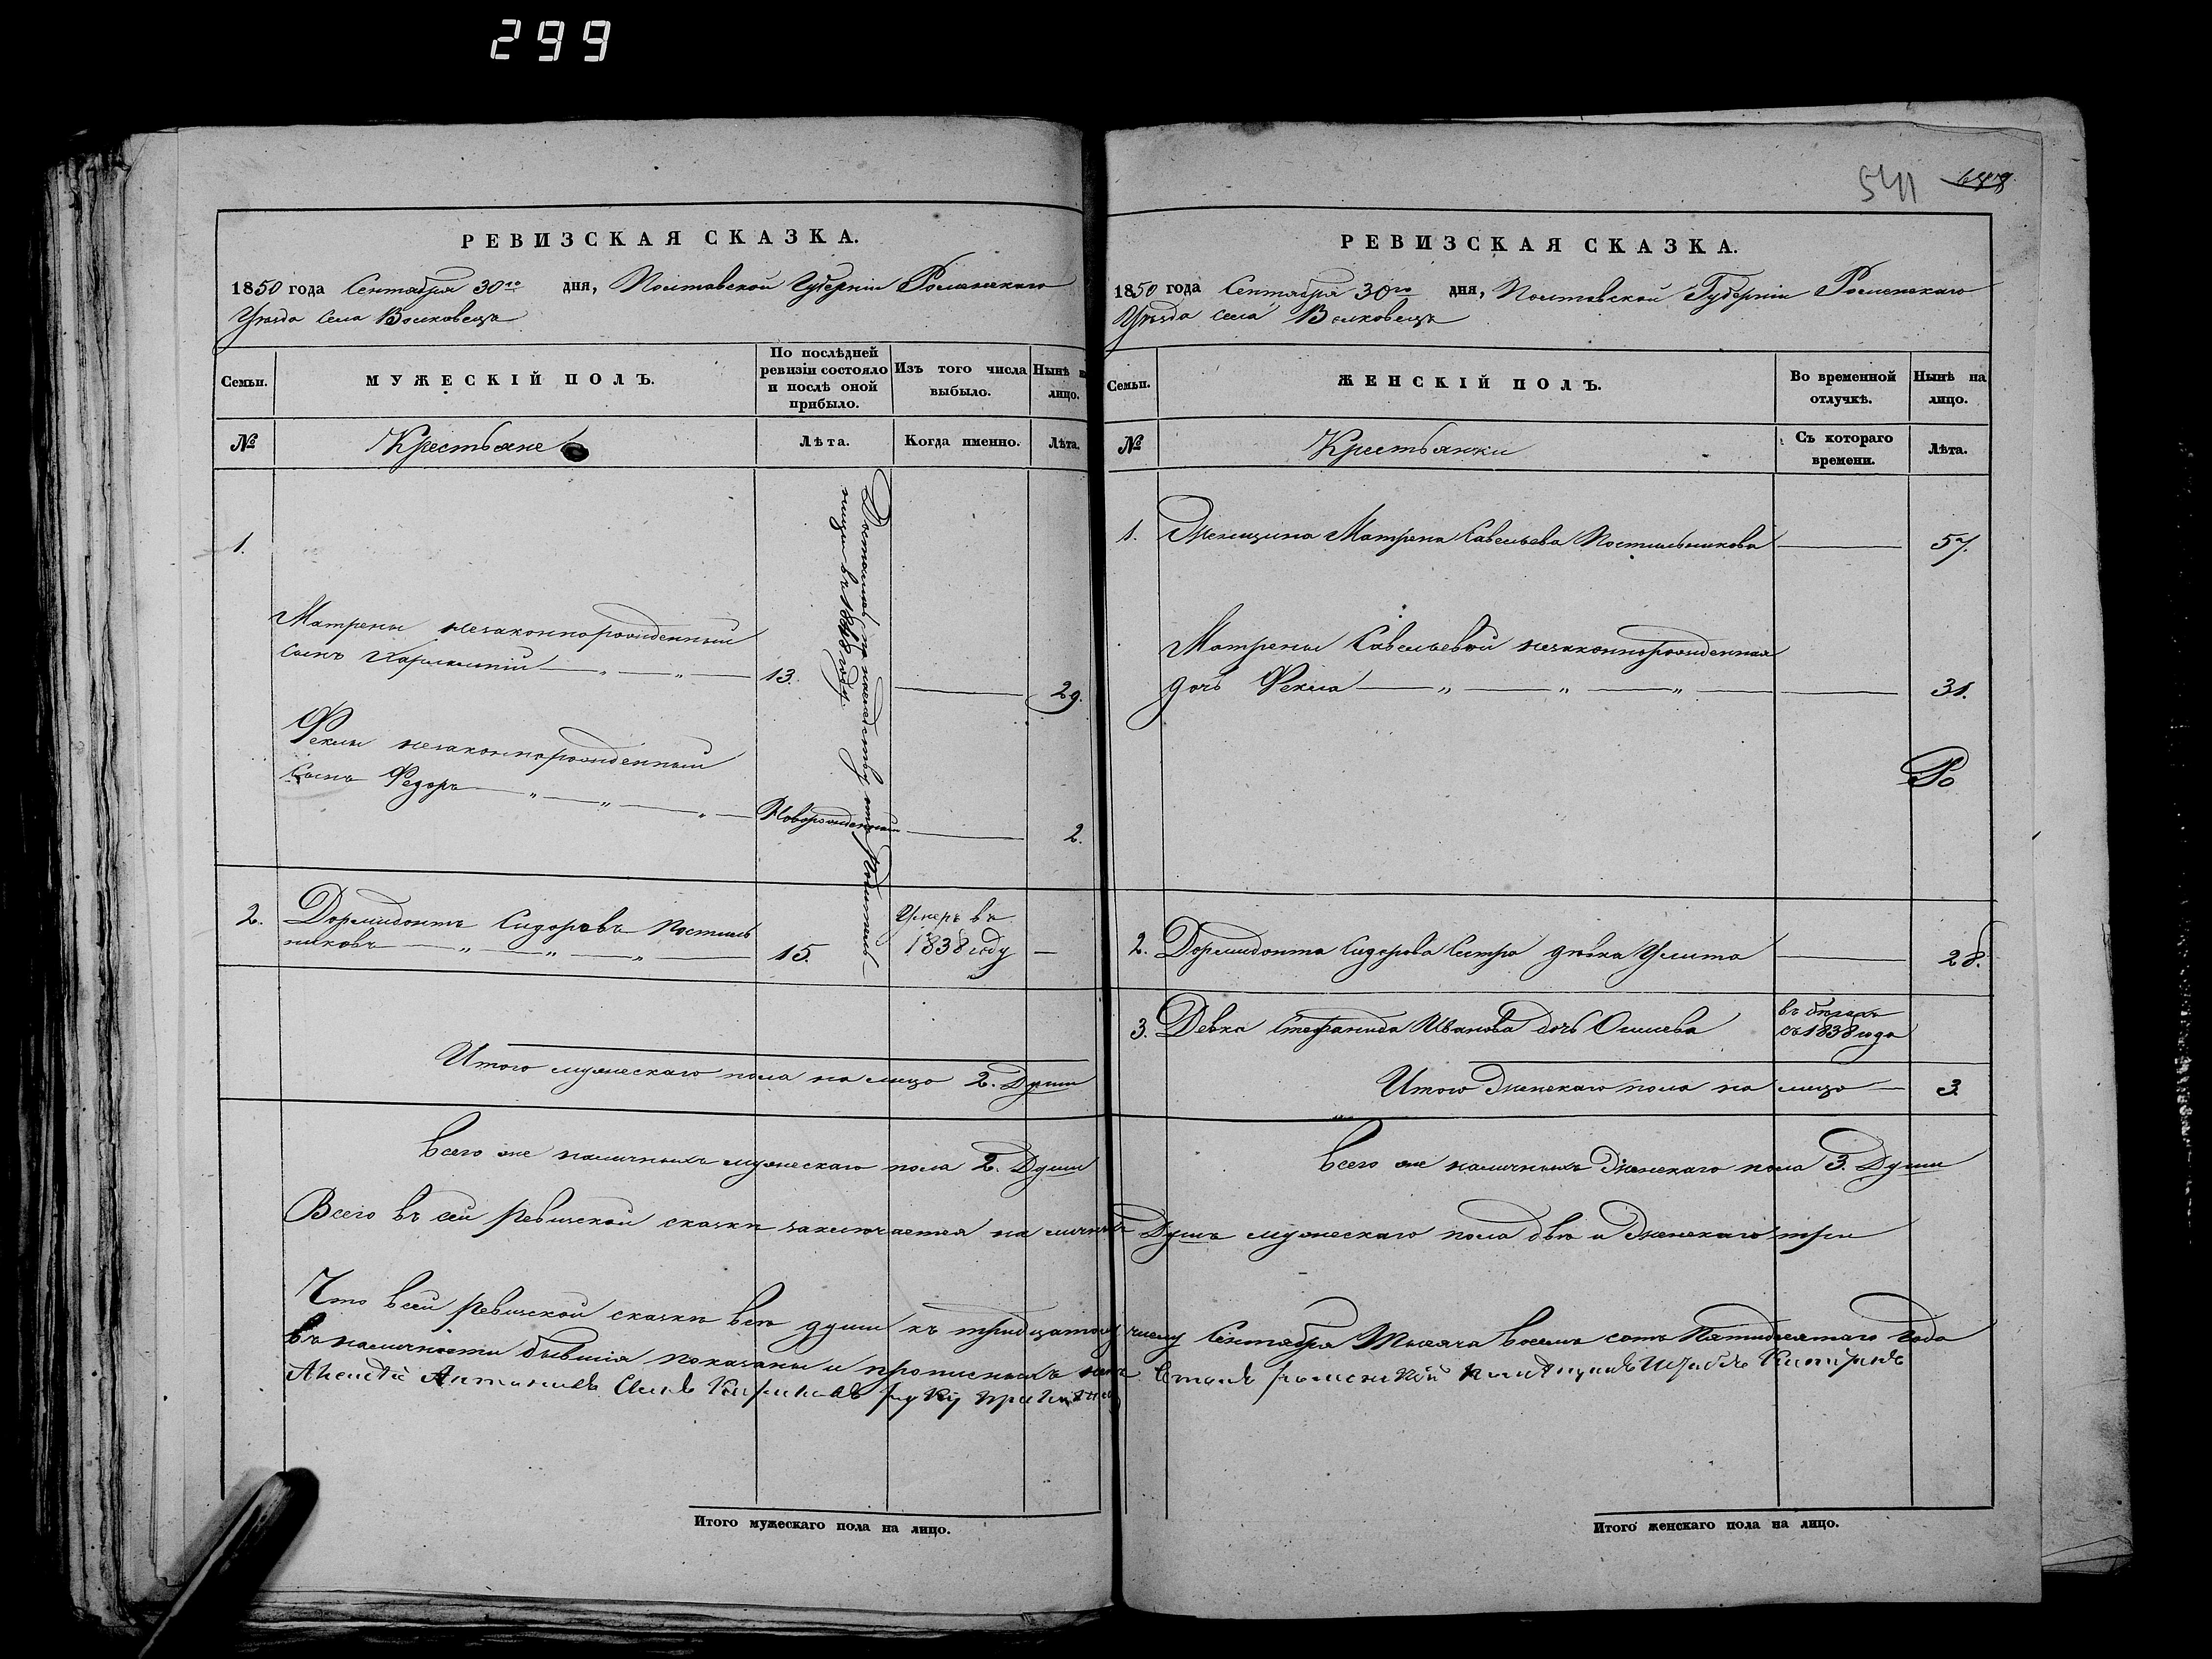 299
РЕВИЗСКАЯ СКАЗКА.
1850 года Сентября 30го дня, Полтавской Губерніи Роменскаго
Уѣзда Села Волковецъ
Семьи.
МУЖЕСКІЙ ПОЛЪ.
По послѣдней ревизіи состояло и послѣ оной прибыло.
Изъ того числа выбыло.
Нынѣ на лицо.
№
Крестьяне
Лѣта.
Когда именно.
Лѣта.
1.
Матрены незаконнорожденный
сынъ Харлампій — „ — „ — 13. — 29.
Феклы незаконнорожденный
Сынъ Федоръ — „ — „ — „ — Новорожденный — 2.
Достались по наслѣдству отъ
въ 1848 году
2. Дормидонтъ Сидоровъ Постиль
никовъ — „ — „ — „ — 15. Умеръ въ 1838 году —
Итого мужескаго пола на лицо 2. Души
Всего же наличныхъ мужескаго пола 2. Души
Всего въ сей ревизской сказкѣ заключается наличныхъ
Что въ сей ревизской сказкѣ всѣ души къ тридцатому
въ наличности бывшія показаны и прописныхъ нѣтъ
руку приложилъ
541
РЕВИЗСКАЯ СКАЗКА.
1850 года Сентября 30го дня, Полтавской Губерніи Роменскаго
Уѣзда Села Волковецъ
Семьи.
ЖЕНСКІЙ ПОЛЪ.
Во временной отлучкѣ.
Нынѣ на лицо.
№
Крестьянки
Съ котораго времени.
Лѣта.
1. Женщина Матрена Савельева Постильникова — 57.
Матрены Савельевой незаконнорожденная
дочь Фекла — „ — „ — „ — — 31.
2. Дормидонта Сидорова Сестра дѣвка Улита — 28.
3. Девка Стефанида Иванова дочь въ бѣгахъ съ 1838 года
Итого Женскаго пола на лицо — 3
Всего же наличныхъ Женскаго пола 3. Души
Душъ мужескаго пола двѣ и Женскаго три
числу Сентября Тысяча восемь сотъ Пятидесятаго Года
Итого мужескаго пола на лицо.
Итого женскаго пола на лицо.